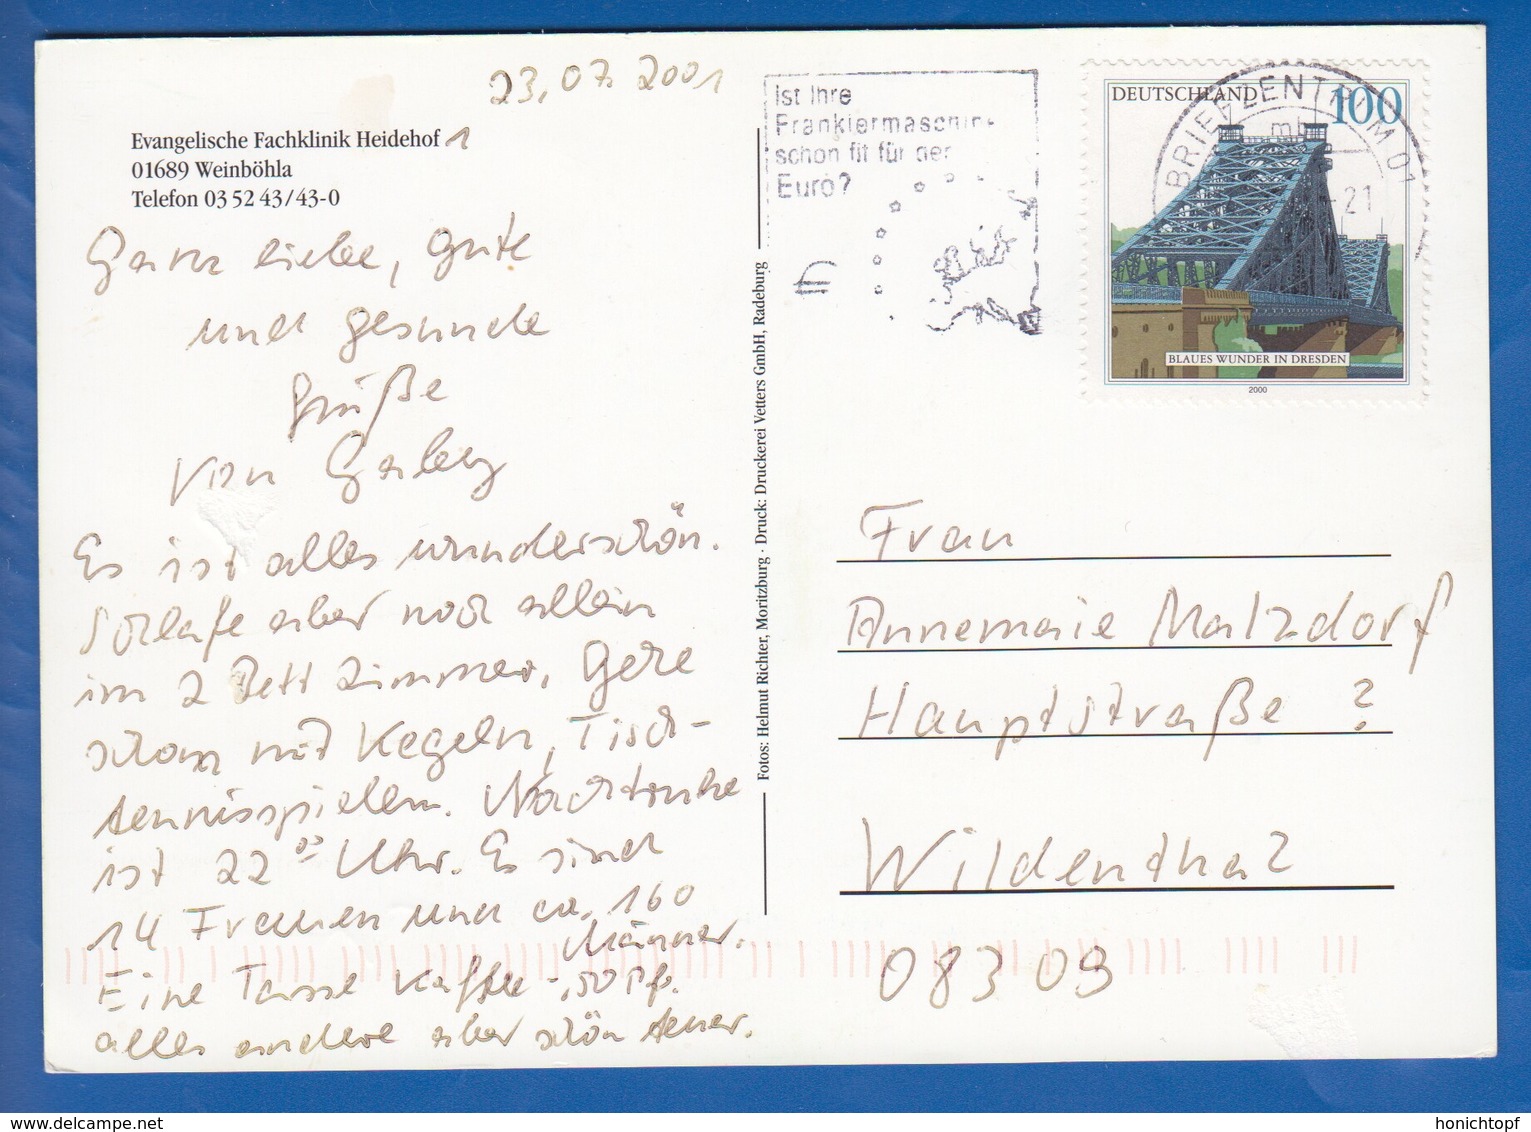 23.07.2001
Evangelische Fachklinik Heidehof 1
01689 Weinböhla
Telefon 03 52 43/43-0
Ganz liebe, gute
und gesunde
Grüße
von Gabey
Es ist alles wunderschön.
Schlafe aber noch allein
im 2 Bett Zimmer. Gehe
schon mit Kegeln, Tisch-
tennisspielen. Nachtruhe
ist 22 00 Uhr. Es sind
14 Frauen und ca. 160
Männer.
Eine Tasse Kaffee -,50 Pf.
alles andere aber schön teuer.
Fotos: Helmut Richter, Moritzburg · Druck: Druckerei Vetters GmbH, Radeburg
Ist Ihre
Frankiermaschine
schon fit für den
Euro?
€
DEUTSCHLAND 100
BRIEFZENTRUM 01
mb
-21
BLAUES WUNDER IN DRESDEN
2000
Frau
Annemarie Matzdorf
Hauptstraße ?
Wildenthal
08309
delcampe.net
honichtopf